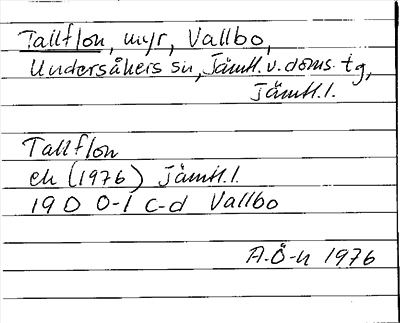 Tallflon, myr, Vallbo,
Undersåkers sn, Jämtl. v. doms. tg,
Jämtl. l.
Tallflon
ek (1976) Jämtl. l.
19 D 0-1 c-d Vallbo
A.Ö-n 1976